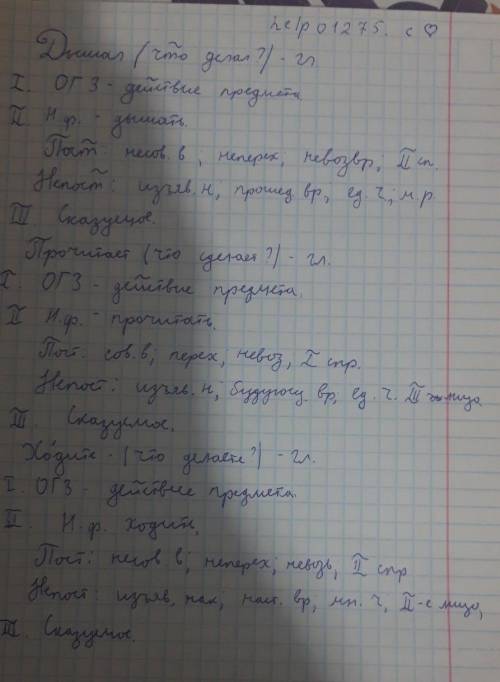 help01275. с ♡
Дышал (что делал?) - гл.
I. ОГЗ - действие предмета
II Н.ф. - дышать.
Пост: несов.в; неперех, невозвр; II сп.
Непост: изъяв.н; прошед.вр, ед.ч; м.р.
III Сказуемое.
Прочитает (что сделает?) - гл.
I. ОГЗ - действие предмета.
II Н.ф. - прочитать.
Пост. сов.в; перех; невоз, I спр.
Непост: изъяв.н; будущ вр, ед.ч. III лицо
III Сказуемое.
Хо́дите - (что делаете?) - гл.
I. ОГЗ - действие предмета
II. Н.ф. ходить,
Пост: несов в; неперех; невозв, II спр
Непост: изъяв. нак; наст. вр, мн. ч, II-е лицо,
III. Сказуемое.